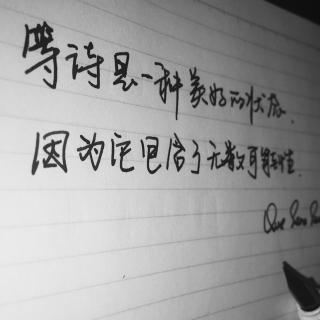 等待是一种美好的状态.
因为它包含了无数可能性.
Que Sera